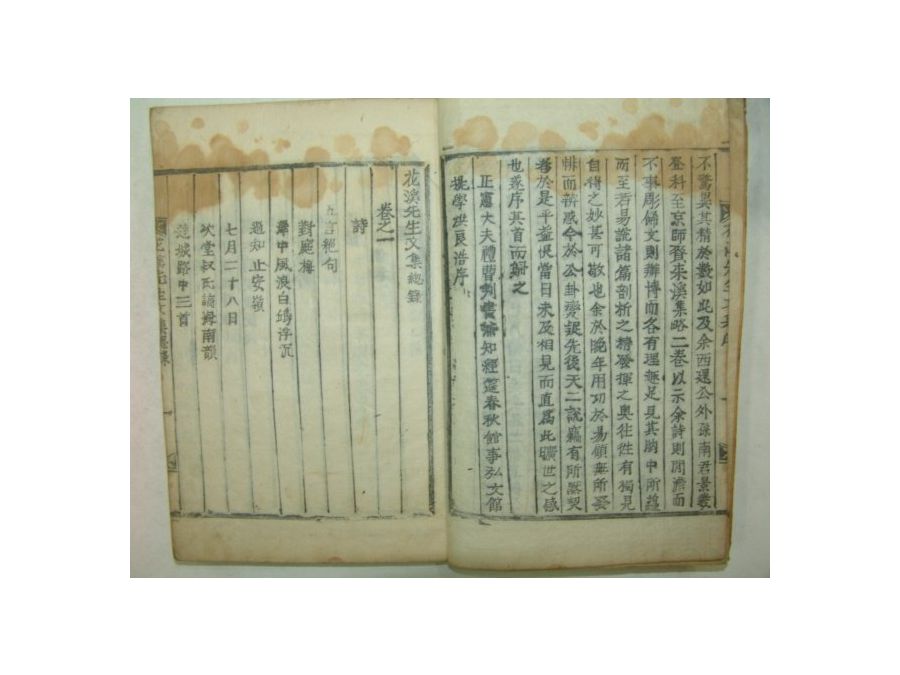 不驚異其精於數如此及余西還公外孫南君景羲
登科至京師賚來溪集略二卷以示余詩則閒澹而
不事彫餙文則辦博而各有理趣足見其胸中所蘊
而至若易說諸篇剖析之精發揮之奧往往有獨見
自得之妙甚可敬也余於晩年用功於易顧無所娶
悱而辨惑今於公卦變說先後天二說竊有所黙契
者於是乎益恨當日未及相見而直爲此曠世之感
也遂序其首而歸之
正憲大夫禮曹判書兼知經筵春秋館事弘文館
提學洪良浩序
花溪先生文集總錄
卷之一
詩
五言絕句
對庭梅
舟中風浪白鷗浮沉
過知止安嶺
七月二十八日
次堂叔氏謫海南韻
達城路中三首